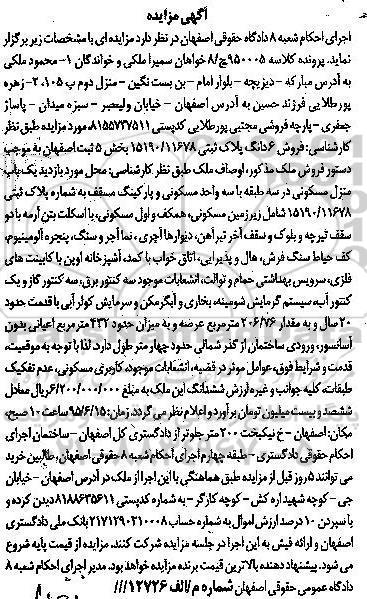 آگهی مزایده
اجرای احکام شعبه ۸ دادگاه حقوقی اصفهان در نظر دارد مزایده ای با مشخصات زیر برگزار
نماید. پرونده کلاسه ۹۵۰۰۰۵ ج/۸ خواهان سمیرا ملکی و خواندگان ۱- محمود ملکی
به آدرس مبارکه - دیزیچه - بلوار امام - بن بست نگین - منزل دوم پ ۱۰۵، ۲- زهره
پورطلایی فرزند حسین به آدرس اصفهان - خیابان ولیعصر - سبزه میدان - پاساژ
جعفری - پارچه فروشی مجتبی پورطلایی کدپستی ۸۱۵۵۷۳۷۵۱۱، مورد مزایده طبق نظر
کارشناسی: فروش ۶ دانگ پلاک ثبتی ۱۵۱۹۰/۱۱۶۷۸ بخش ۵ ثبت اصفهان به موجب
دستور فروش ملک مذکور، اوصاف ملک طبق نظر کارشناسی: محل مورد بازدید یک باب
منزل مسکونی در سه طبقه با سه واحد مسکونی و پارکینگ مسقف به شماره پلاک ثبتی
۱۵۱۹۰/۱۱۶۷۸ شامل زیرزمین مسکونی، همکف و اول مسکونی، با اسکلت بتن آرمه با دو
سقف تیرچه و بلوک و سقف آخر تیرآهن، دیوارها آجری، نما آجر و سنگ، پنجره آلومینیوم،
کف حیاط سنگ فرش، هال و پذیرایی، اتاق خواب با کمد، آشپزخانه اوپن با کابینت های
فلزی، سرویس بهداشتی حمام و توالت، انشعابات موجود سه کنتور برق، سه کنتور گاز و یک
کنتور آب، سیستم گرمایش شومینه، بخاری و آبگرمکن و سرمایش کولر آبی با قدمت حدود
۲۰ سال و به مقدار ۲۰۶/۷۶ مترمربع عرصه و به میزان حدود ۴۳۲ مترمربع اعیانی بدون
آسانسور، ورودی ساختمان از گذر شمالی حدود چهار متر طول دارد. لذا با توجه به موقعیت،
قدمت و شرایط فوق، عوامل موثر در قضیه، انشعابات موجود، کاربری مسکونی، عدم تفکیک
طبقات، کلیه جوانب و غیره ارزش ششدانگ این ملک به مبلغ ۶/۲۰۰/۰۰۰/۰۰۰ ریال معادل
ششصد و بیست میلیون تومان برآورد و اعلام نظر می گردد. زمان: ۹۵/۶/۱۵ ساعت ۱۰ صبح،
مکان: اصفهان - خ نیکبخت ۲۰۰ متر جلوتر از دادگستری کل اصفهان - ساختمان اجرای
احکام حقوقی دادگستری - طبقه چهارم اجرای احکام شعبه ۸ حقوقی اصفهان، طالبین خرید
می توانند ۵ روز قبل از مزایده طبق هماهنگی با این اجرا از ملک در آدرس اصفهان - خیابان
جی - کوچه شهید اره کش - کوچه کارگر - به شماره کدپستی ۸۱۸۸۶۳۵۶۱۱ دیدن کرده و
با سپردن ۱۰ درصد ارزش اموال به شماره حساب ۲۱۷۱۲۹۰۲۱۰۰۰۸ بانک ملی دادگستری
اصفهان و ارائه فیش به این اجرا در جلسه مزایده شرکت کنند. مزایده از قیمت پایه شروع
می شود. پیشنهاد دهنده بالاترین قیمت برنده مزایده خواهد بود. مدیر اجرای احکام شعبه ۸
دادگاه عمومی حقوقی اصفهان شماره م/الف ۱۲۷۲۶///